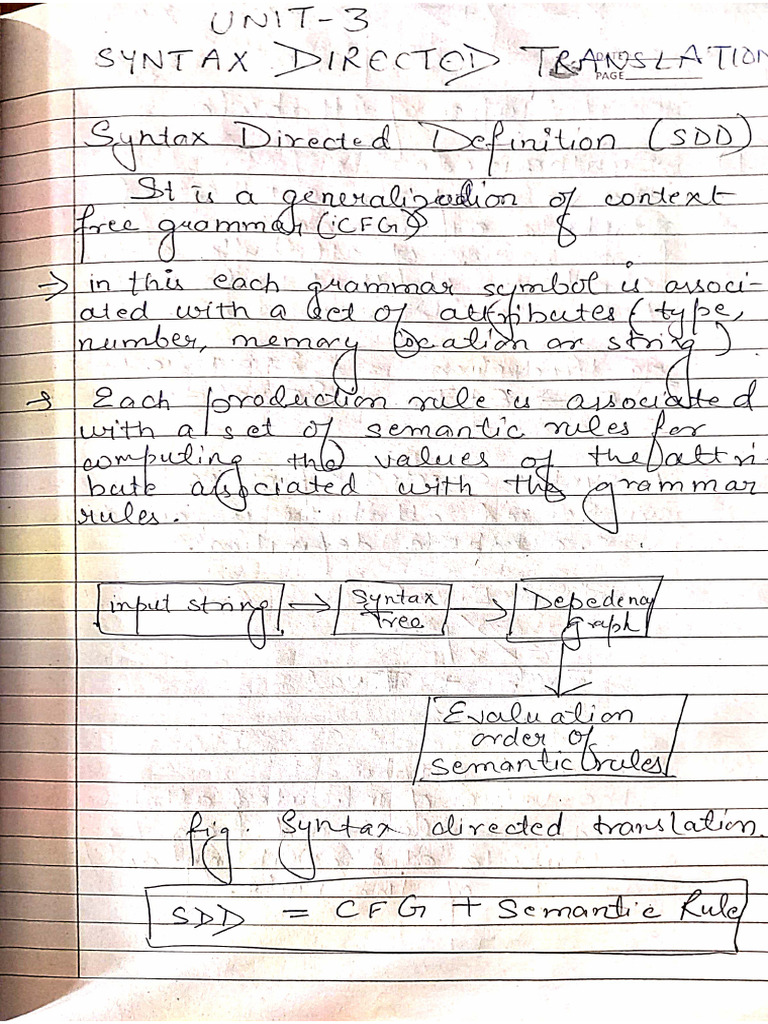 UNIT-3
SYNTAX DIRECTED TRANSLATION
PAGE
Syntax Directed Definition (SDD)
It is a generalization of context
free grammar (CFG)
→ in this each grammar symbol is associ-
ated with a set of attributes (type,
number, memory location or string).
→ Each production rule is associated
with a set of semantic rules for
computing the values of the attri
bute associated with the grammar
rules.
input string → Syntax Tree → Depedency graph
Evaluation
order of
semantic rules
fig. Syntax directed translation
SDD = CFG + Semantic Rule